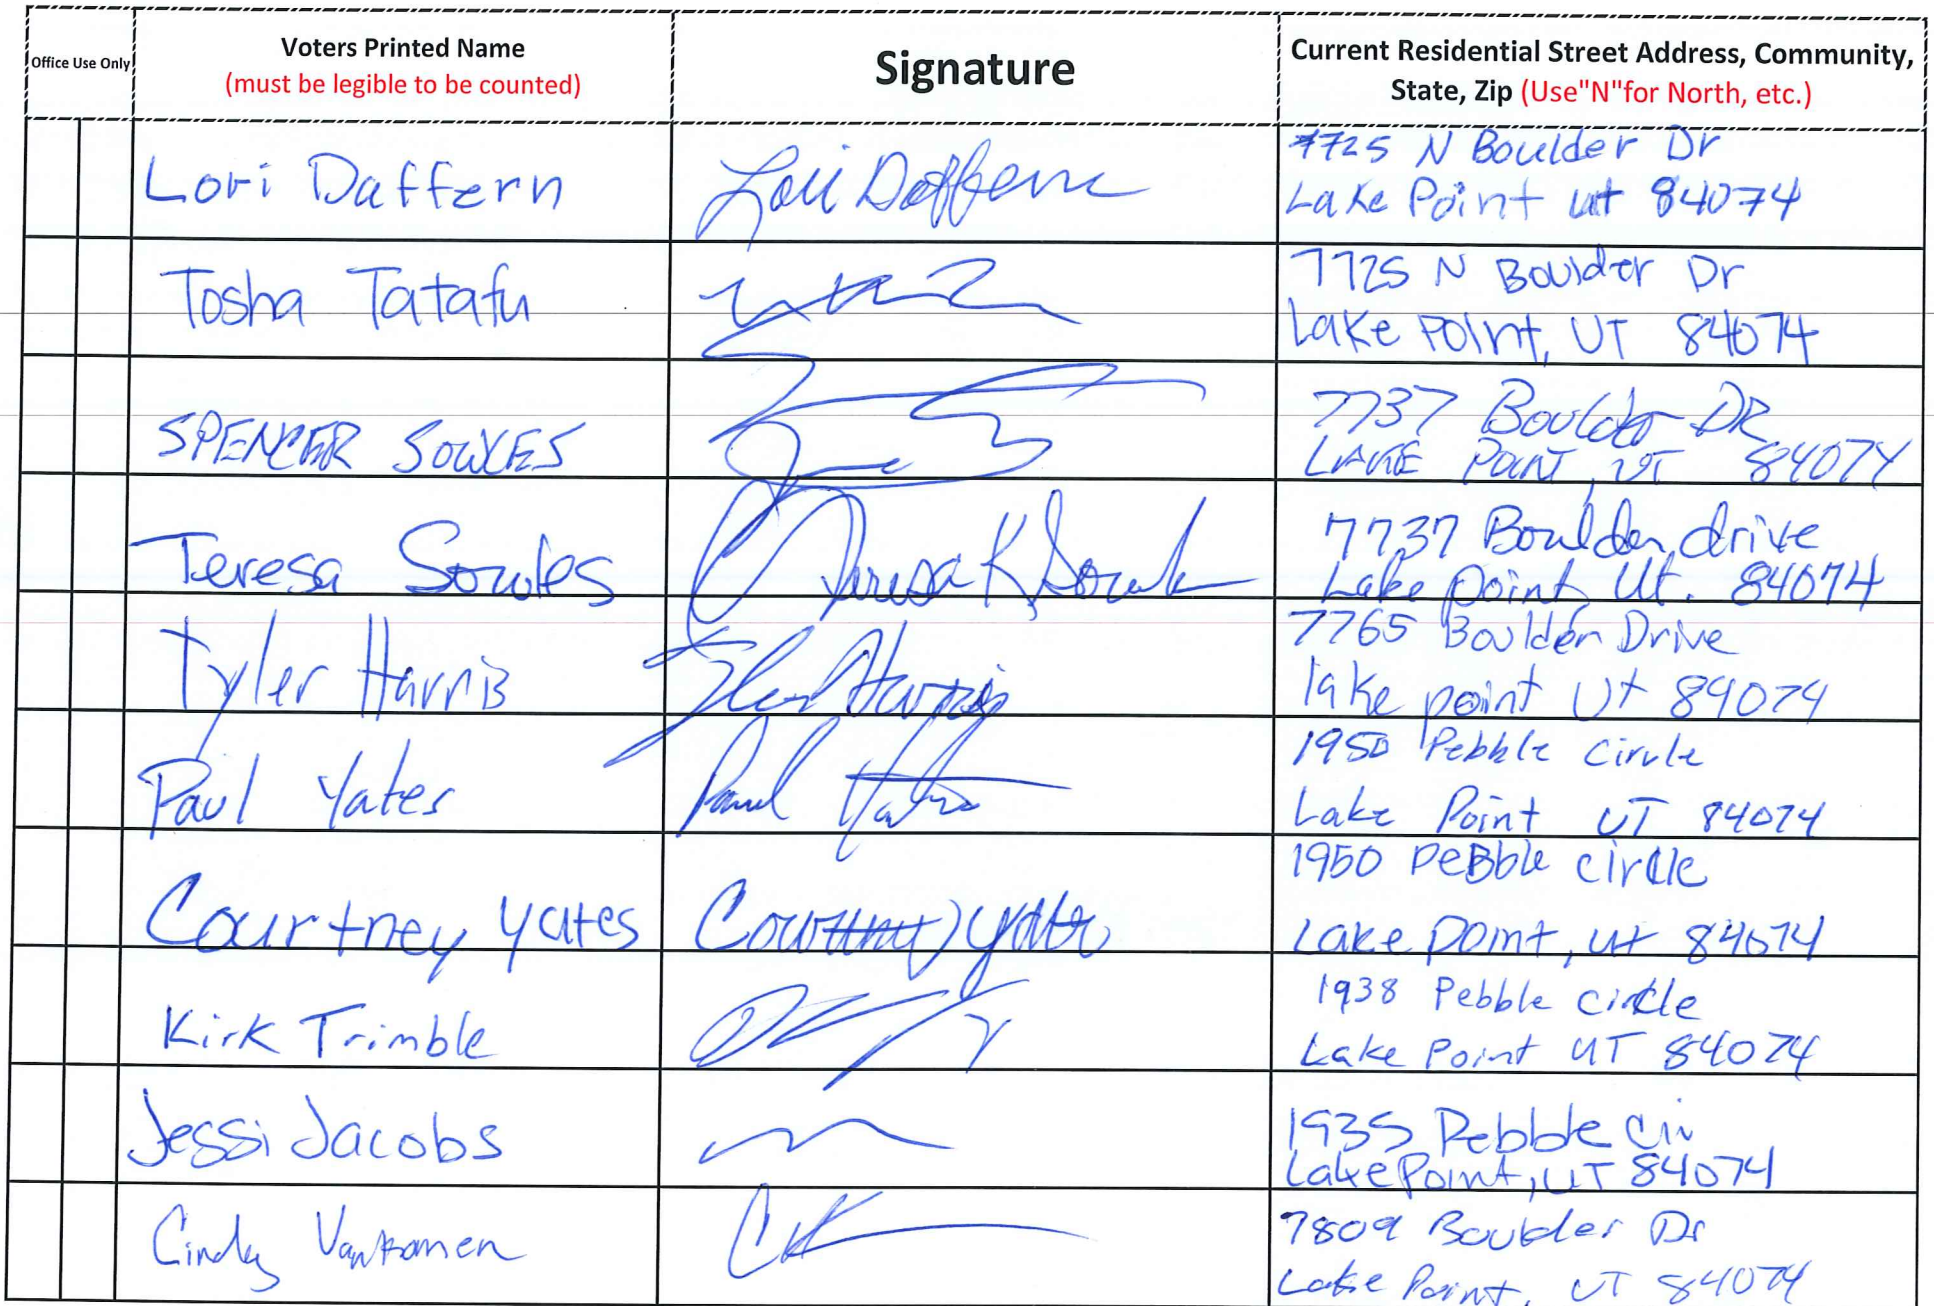 Office Use Only
Voters Printed Name
(must be legible to be counted)
Signature
Current Residential Street Address, Community,
State, Zip (Use"N"for North, etc.)
Lori Daffern
Lori Daffern
7725 N Boulder Dr
Lake Point ut 84074
Tosha Tatafu
7725 N Boulder Dr
Lake Point, UT 84074
SPENCER SOWLES
7737 Boulder DR
LAKE POINT, UT 84074
Teresa Sowles
Teresa K Sowles
7737 Boulder drive
Lake Point, Ut. 84074
Tyler Harris
Tyler Harris
7765 Boulder Drive
lake point Ut 84074
Paul Yates
Paul Yates
1950 Pebble Circle
Lake Point UT 84074
Courtney Yates
Courtney Yates
1950 PeBble circle
Lake Point, ut 84074
Kirk Trimble
1938 Pebble circle
Lake Point UT 84074
Jessi Jacobs
1935 Pebble Cir
Lake Point, UT 84074
Cindy
7809 Boulder Dr
Lake Point, UT 84074